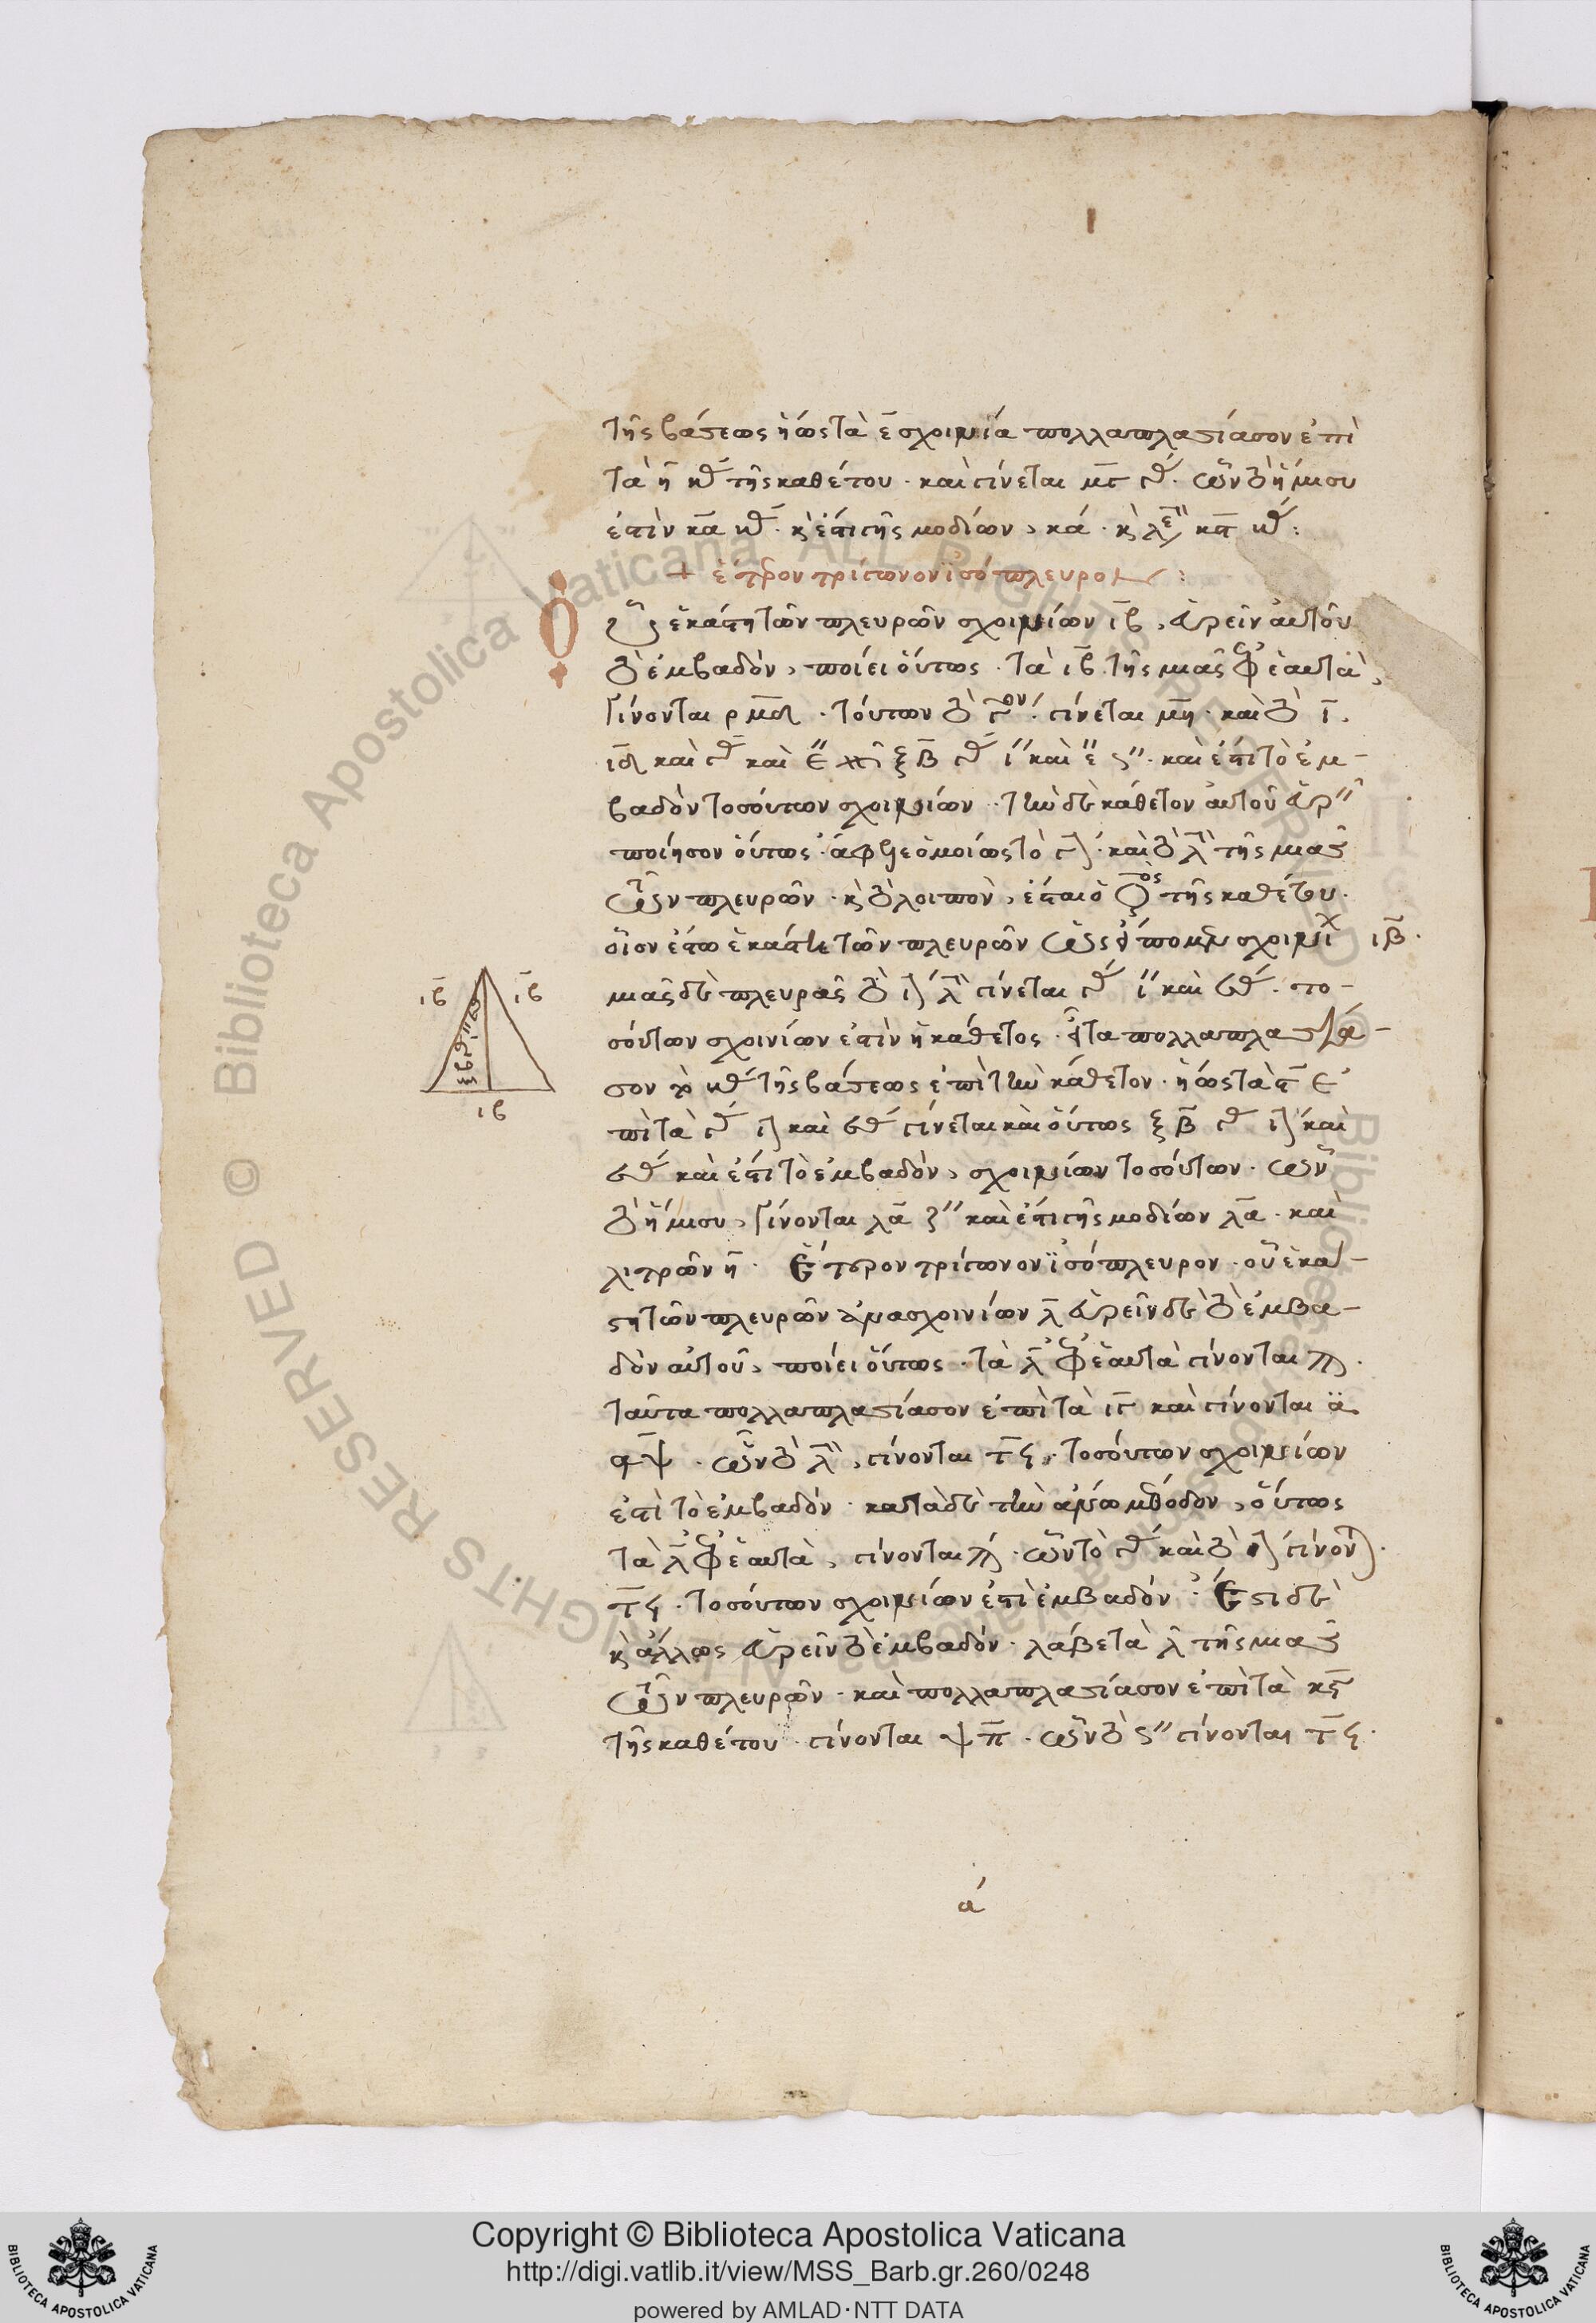 τῆς βάσεως ἤως τὰ ε̄ σχοινία πολλαπλασίασον ἐπὶ
τὰ η̄ τῆς καθέτου · καὶ γίνεται μ̄γ · ὧν τὸ ἥμισυ
ἐστὶν κ̄α · κ̀ ἐστὶ γῆς μοδίων, κά · κ̀ λ
+ ἕτερον τρίγωνον ἰσόπλευρον :
ἑκάστη τῶν πλευρῶν σχοινίων ῑβ, εὑρεῖν αὐτοῦ
τὸ ἐμβαδὸν, ποίει οὕτως · τὰ ῑβ τῆς μιᾶς ἐφ' ἑαυτὰ,
γίνονται ρ̄μ̄δ · τούτων τὸ γον · γίνεται μ̄η · καὶ τὸ ῑ.
ῑδ καὶ καὶ ξ̄β̄ καὶ · καὶ ἔστι τὸ ἐμ-
βαδὸν τοσούτων σχοινίων · τὴν δὲ κάθετον αὐτοῦ εὑρεῖν
ποίησον οὕτως · ἄφελε ὁμοίως τὸ ῑ · καὶ τὸ λ̄ τῆς μιᾶς
τῶν πλευρῶν · κ̀ τὸ λοιπὸν, ἔσται ὁ τῆς καθέτου ·
οἷον ἔστω ἑκάστη τῶν πλευρῶν τοῦ τριγώνου σχοινί ιβ̄ ·
μιᾶς δὲ πλευρᾶς τὸ ῑ λ̄ γίνεται καὶ · το-
σούτων σχοινίων ἐστὶν ἡ κάθετος · εἶτα πολλαπλασία-
σον τὸ τῆς βάσεως ἐπὶ τὴν κάθετον · ἤως τὰ ϛ̄ ἐ
πὶ τὰ καὶ γίνεται καὶ οὕτως ξ̄β̄ καὶ
καὶ ἔστι τὸ ἐμβαδὸν, σχοινίων τοσούτων · ὧν
τὸ ἥμισυ, γίνονται λ̄α καὶ ἐστὶ γῆς μοδίων λ̄α · καὶ
λιτρῶν η̄ · Ἕτερον τρίγωνον ἰσόπλευρον · οὗ ἑκά-
στη τῶν πλευρῶν ἀνὰ σχοινίων λ̄ εὑρεῖν δὲ τὸ ἐμβα-
δὸν αὐτοῦ, ποίει οὕτως · τὰ λ̄ ἐφ' ἑαυτὰ γίνονται ϡ ·
ταῦτα πολλαπλασίασον ἐπὶ τὰ ῑγ καὶ γίνονται α
α ψ̄ · ὧν τὸ λ̄, γίνονται τ̄ϟ · τοσούτων σχοινίων
ἐστὶ τὸ ἐμβαδόν · κατὰ δὲ τὴν ἄνω μέθοδον, οὕτως
τὰ λ̄ ἐφ' ἑαυτὰ, γίνονται ϡ · ὧν τὸ γ καὶ τὸ ῑ γίνον
τ̄ϟ · τοσούτων σχοινίων ἐστὶ ἐμβαδόν · Ἔστι δὲ
κ̀ ἄλλως εὑρεῖν τὸ ἐμβαδόν · λάβε τὰ λ̄ τῆς μιᾶς
τῶν πλευρῶν · καὶ πολλαπλασίασον ἐπὶ τὰ κ̄ϛ
τῆς καθέτου · γίνονται ψ π̄ · ὧν τὸ ϛ'' γίνονται τ̄ϟ ·
ῑβ
ῑβ
ιβ
ά
Copyright © Biblioteca Apostolica Vaticana
http://digi.vatlib.it/view/MSS_Barb.gr.260/0248
powered by AMLAD·NTT DATA
BIBLIOTECA APOSTOLICA VATICANA
BIBLIOTECA APOSTOLICA VATICANA